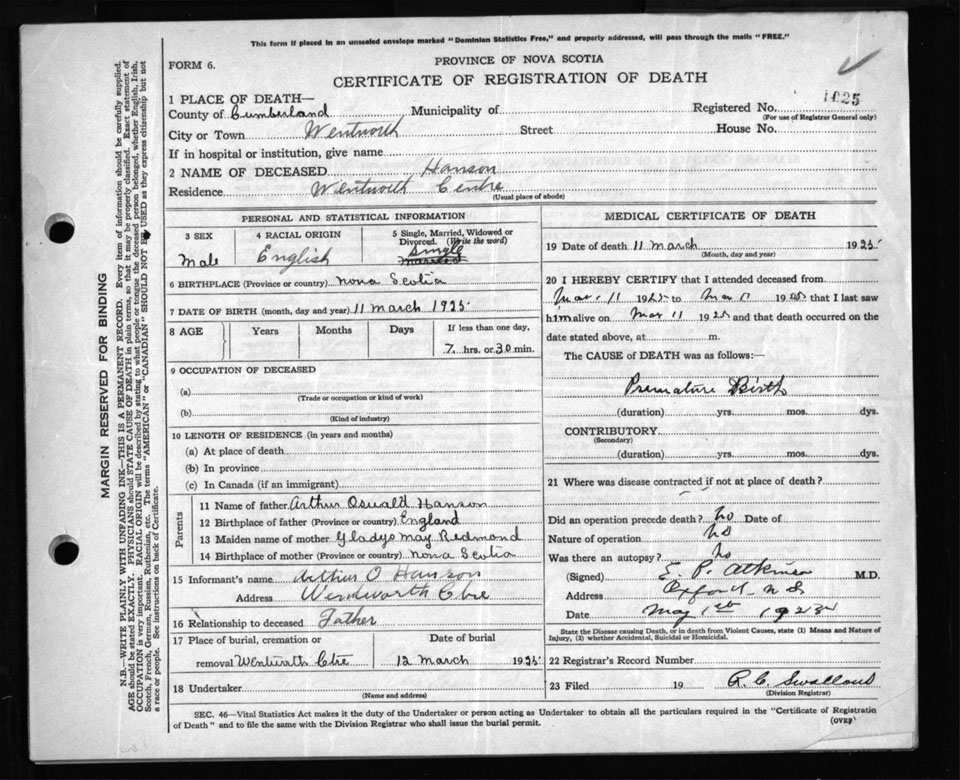 This form if placed in an unsealed envelope marked "Dominion Statistics Free," and properly addressed, will pass through the mails "FREE."
FORM 6.
PROVINCE OF NOVA SCOTIA
CERTIFICATE OF REGISTRATION OF DEATH
1 PLACE OF DEATH—
County of Cumberland Municipality of Registered No. 1025
(For use of Registrar General only)
City or Town Wentworth Street House No.
If in hospital or institution, give name
2 NAME OF DECEASED Hanson
Residence Wentworth Centre
(Usual place of abode)
PERSONAL AND STATISTICAL INFORMATION
3 SEX 4 RACIAL ORIGIN 5 Single, Married, Widowed or Divorced. (Write the word)
Male English Single
6 BIRTHPLACE (Province or country) Nova Scotia
7 DATE OF BIRTH (month, day and year) 11 March 1925
8 AGE Years Months Days If less than one day,
7 hrs. or 30 min.
9 OCCUPATION OF DECEASED
(a)
(Trade or occupation or kind of work)
(b)
(Kind of industry)
10 LENGTH OF RESIDENCE (in years and months)
(a) At place of death
(b) In province
(c) In Canada (if an immigrant)
Parents
11 Name of father Arthur Oswald Hanson
12 Birthplace of father (Province or country) England
13 Maiden name of mother Gladys May Redmond
14 Birthplace of mother (Province or country) Nova Scotia
15 Informant's name Arthur O Hanson
Address Wentworth Ctre
16 Relationship to deceased Father
17 Place of burial, cremation or removal Wentworth Ctre
Date of burial 12 March 1925
18 Undertaker
(Name and address)
MEDICAL CERTIFICATE OF DEATH
19 Date of death 11 March 1925
(Month, day and year)
20 I HEREBY CERTIFY that I attended deceased from
Mar 11 1925 to Mar 11 1925 that I last saw
him alive on Mar 11 1925 and that death occurred on the
date stated above, at m.
The CAUSE OF DEATH was as follows:—
Premature Birth
(duration) yrs. mos. dys.
CONTRIBUTORY
(Secondary)
(duration) yrs. mos. dys.
21 Where was disease contracted if not at place of death?
Did an operation precede death? No Date of
Nature of operation No
Was there an autopsy? No
(Signed) E. P. Atkinson M.D.
Address Oxford N S
Date May 1st
State the Disease causing Death, or in death from Violent Causes, state (1) Means and Nature of
Injury, (2) whether Accidental, Suicidal or Homicidal.
22 Registrar's Record Number
23 Filed 19 R. C.
(Division Registrar)
SEC. 46—Vital Statistics Act makes it the duty of the Undertaker or person acting as Undertaker to obtain all the particulars required in the "Certificate of Registration
of Death" and to file the same with the Division Registrar who shall issue the burial permit.
(OVER)
MARGIN RESERVED FOR BINDING
N.B.—WRITE PLAINLY WITH UNFADING INK—THIS IS A PERMANENT RECORD. Every item of information should be carefully supplied.
AGE should be stated EXACTLY. PHYSICIANS should STATE CAUSE OF DEATH in plain terms, so that it may be properly classified. Exact statement of
OCCUPATION is very important. RACIAL ORIGIN will be described by stating to what people or tongue the deceased person belonged, whether English, Irish,
Scotch, French, German, Russian, Ruthenian, etc. The terms "AMERICAN" or "CANADIAN" SHOULD NOT BE USED as they express citizenship but not
a race or people. See instructions on back of Certificate.